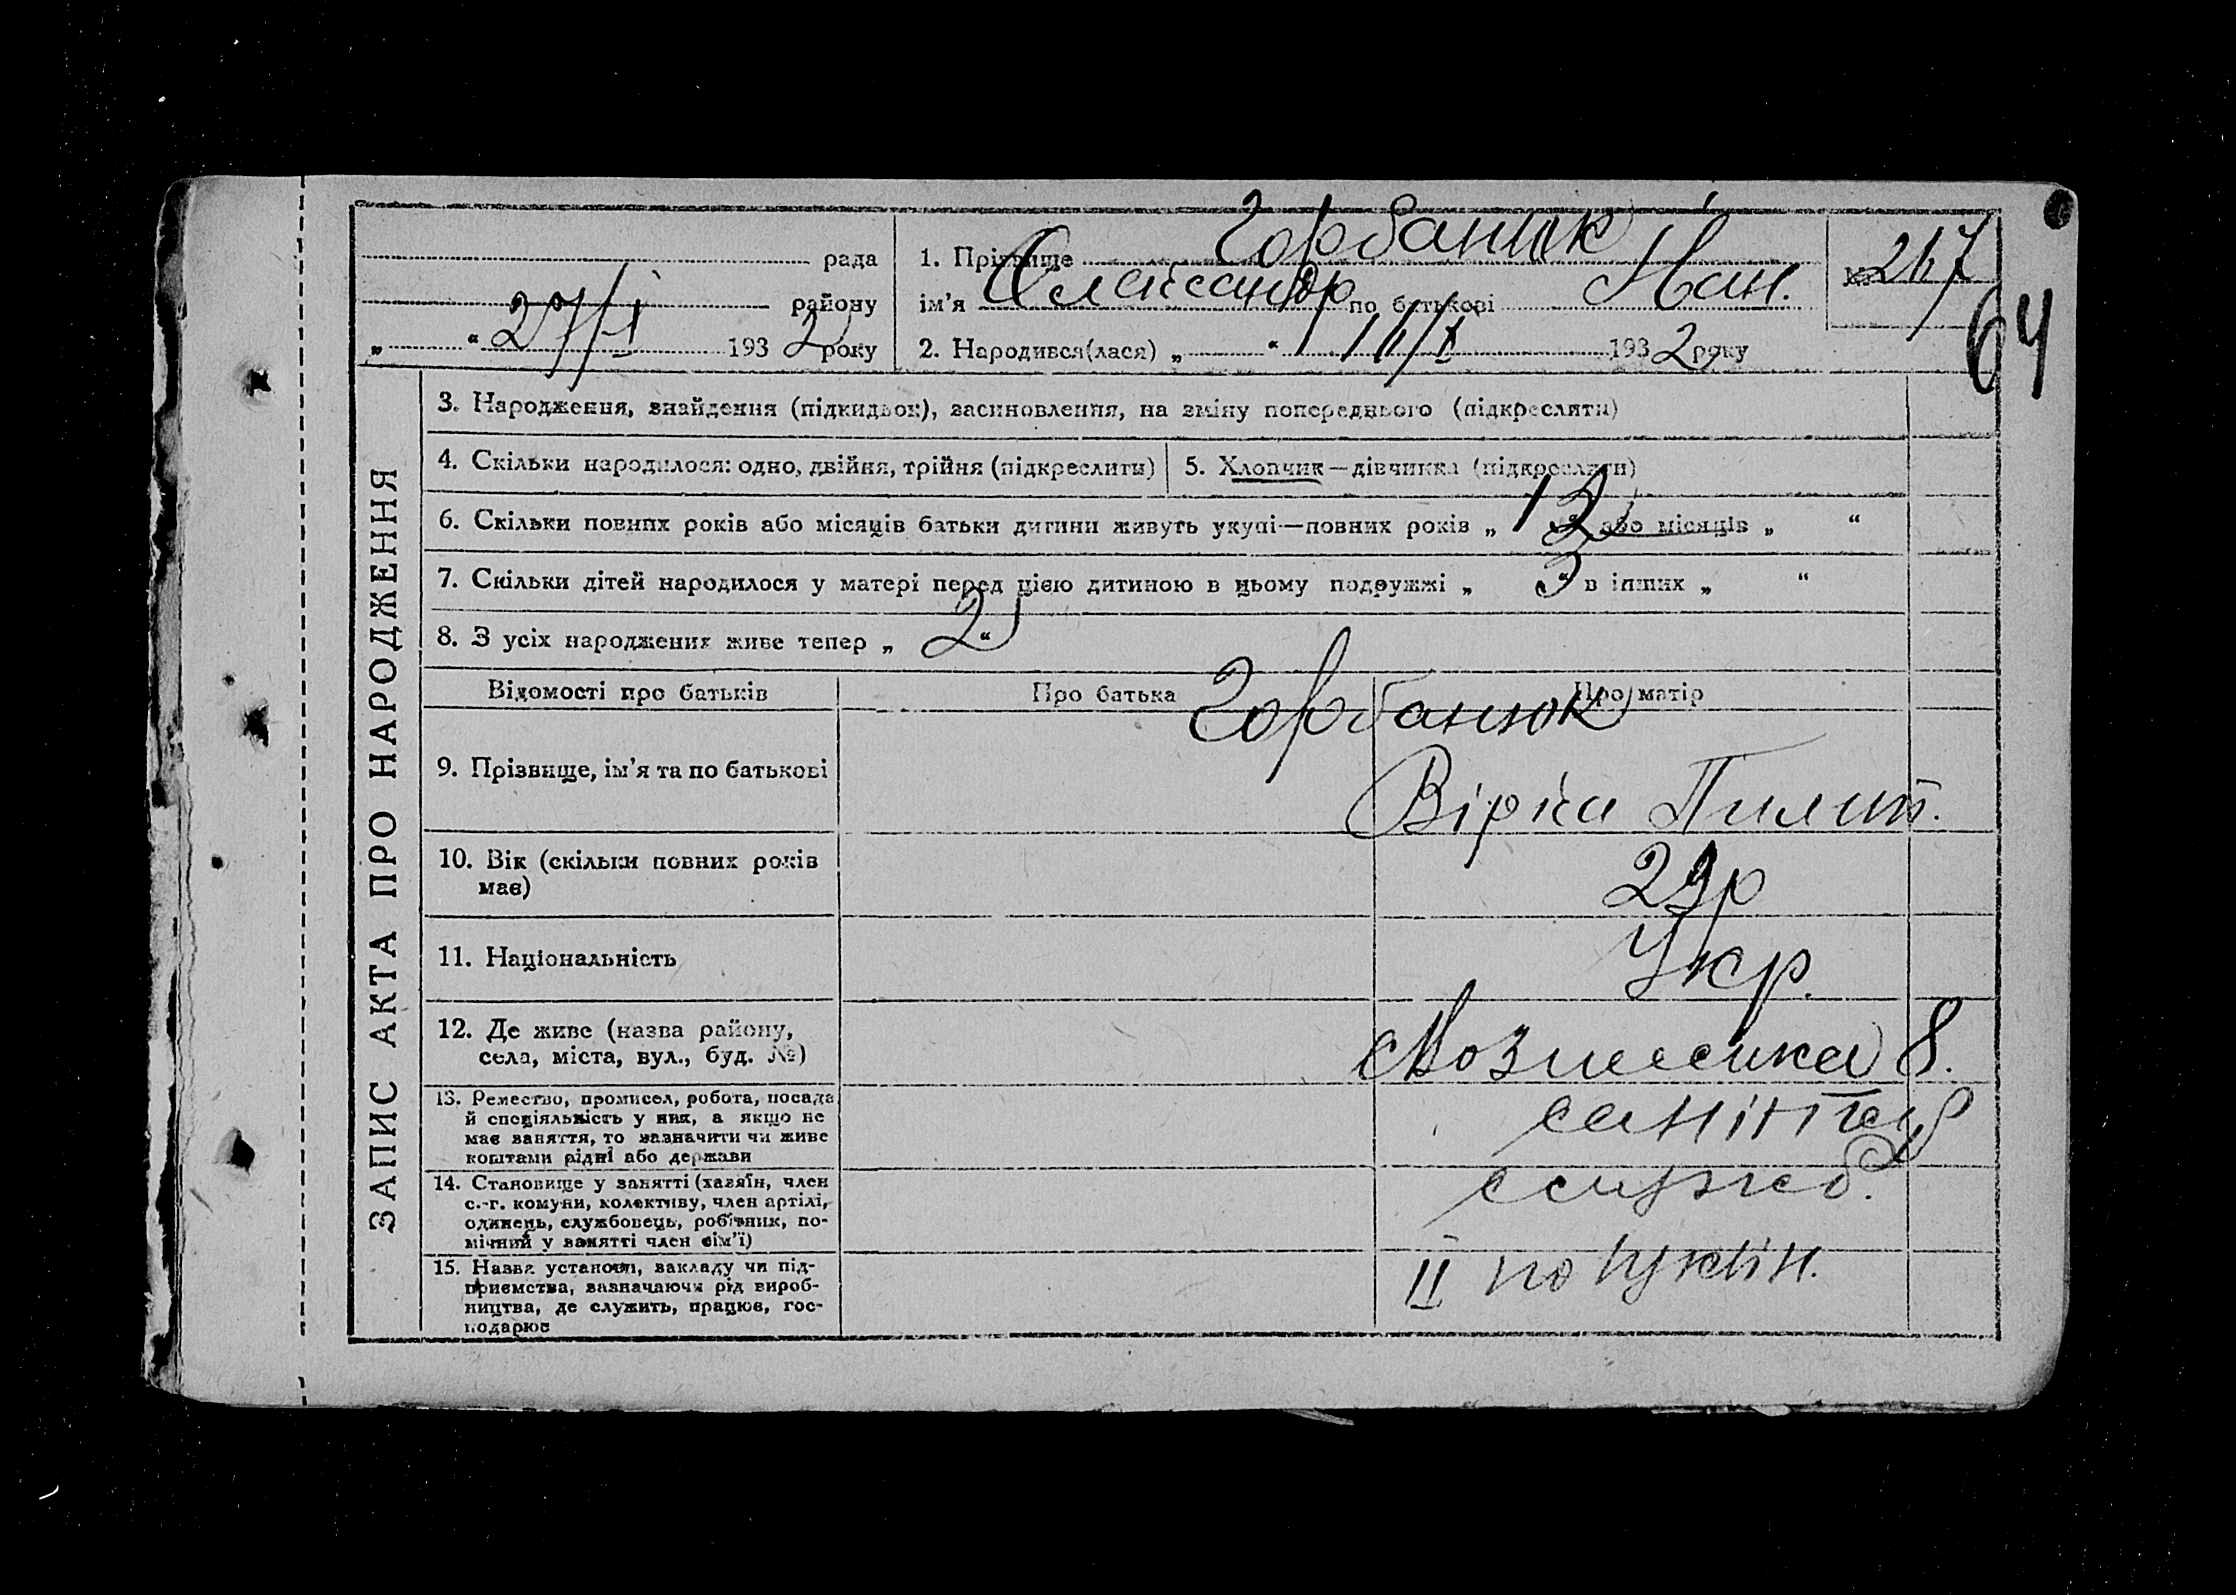 рада
району
„ “ 27/I 1932 року
1. Прізвище Горбанюк
ім’я Олександр по батькові
2. Народився(лася) „ “ 1932 року
№ 267
64
ЗАПИС АКТА ПРО НАРОДЖЕННЯ
3. Народження, знайдення (підкидьок), засиновлення, на зміну попереднього (підкреслити)
4. Скільки народилося: одно, двійня, трійня (підкреслити)
5. Хлопчик—дівчинка (підкреслити)
6. Скільки повних років або місяців батьки дитини живуть укупі—повних років „ “ або місяців „ “
7. Скільки дітей народилося у матері перед цією дитиною в цьому подружжі „ 3 “ в інших „ “
8. З усіх народжених живе тепер „ 2 “
Відомості про батьків
Про батька
Про матір
9. Прізвище, ім’я та по батькові
Горбанюк
Вірка Пилип.
10. Вік (скільки повних років
має)
11. Національність
Укр.
12. Де живе (назва району,
села, міста, вул., буд. №)
8.
13. Ремество, промисел, робота, посада
й спеціяльність у них, а якщо не
має заняття, то зазначити чи живе
коштами рідні або держави
14. Становище у занятті (хазяїн, член
с.-г. комуни, колективу, член артілі,
одинець, службовець, робітник, по-
мічний у занятті член сім’ї)
служб.
15. Назва установи, закладу чи під-
приємства, зазначаючи рід вироб-
ництва, де служить, працює, гос-
подарює
II